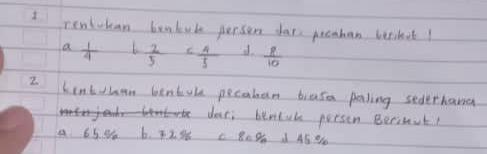 1 Tentukan bentuk persen dari pecahan berikut !
a 1/4 b 2/5 c 4/5 d. 8/10
2 tentukan bentuk pecahan biasa paling sederhana
menjadi bentuk dari bentuk persen Berikut!
a 65% b. 72% c 80% d 45%